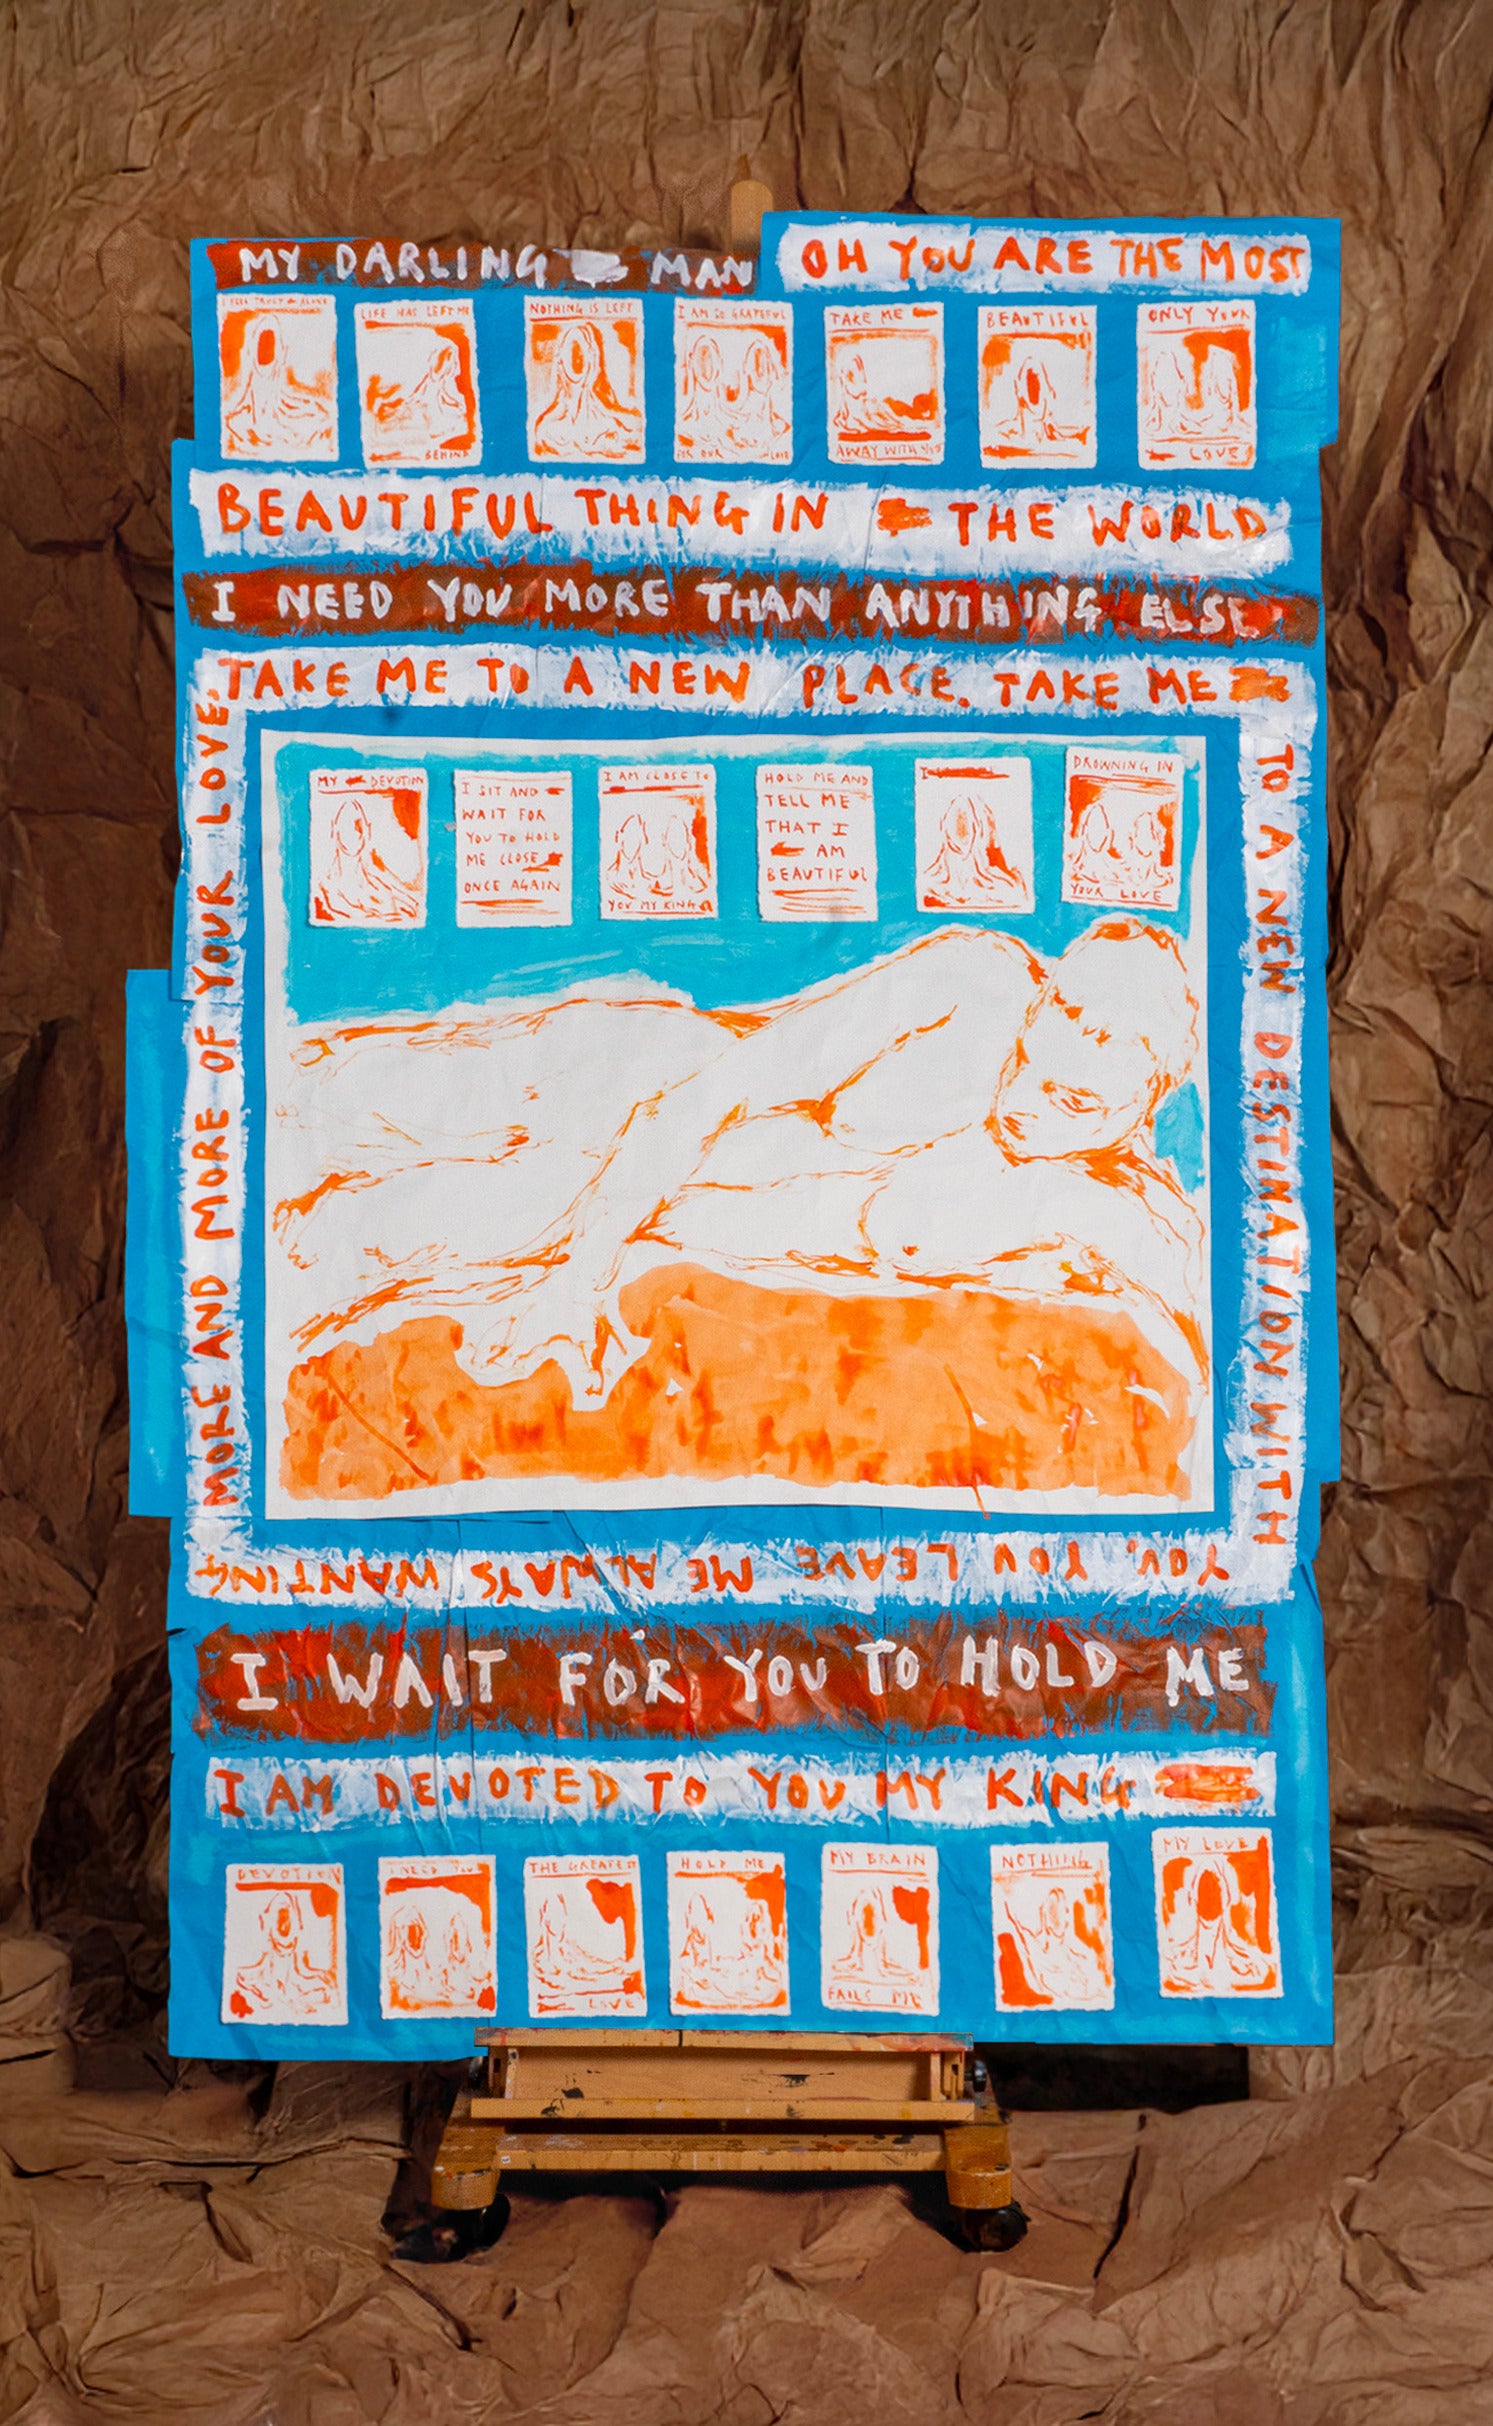 MY DARLING MAN
OH YOU ARE THE MOST
I FEEL TRULY ALONE
LIFE HAS LEFT ME
BEHIND
NOTHING IS LEFT
I AM SO GRATEFUL
FOR OUR LOVE
TAKE ME
AWAY WITH YOU
BEAUTIFUL
ONLY YOUR
LOVE
BEAUTIFUL THING IN THE WORLD
I NEED YOU MORE THAN ANYTHING ELSE
TAKE ME TO A NEW PLACE. TAKE ME
TO A NEW DESTINATION WITH
YOU. YOU LEAVE ME ALWAYS WANTING
MORE AND MORE OF YOUR LOVE.
MY DEVOTION
I SIT AND
WAIT FOR
YOU TO HOLD
ME CLOSE
ONCE AGAIN
I AM CLOSE TO
YOU MY KING
HOLD ME AND
TELL ME
THAT I
AM
BEAUTIFUL
I
DROWNING IN
YOUR LOVE
I WAIT FOR YOU TO HOLD ME
I AM DEVOTED TO YOU MY KING
DEVOTION
I NEED YOU
THE GREATEST
LOVE
HOLD ME
MY BRAIN
FAILS ME
NOTHING
MY LOVE